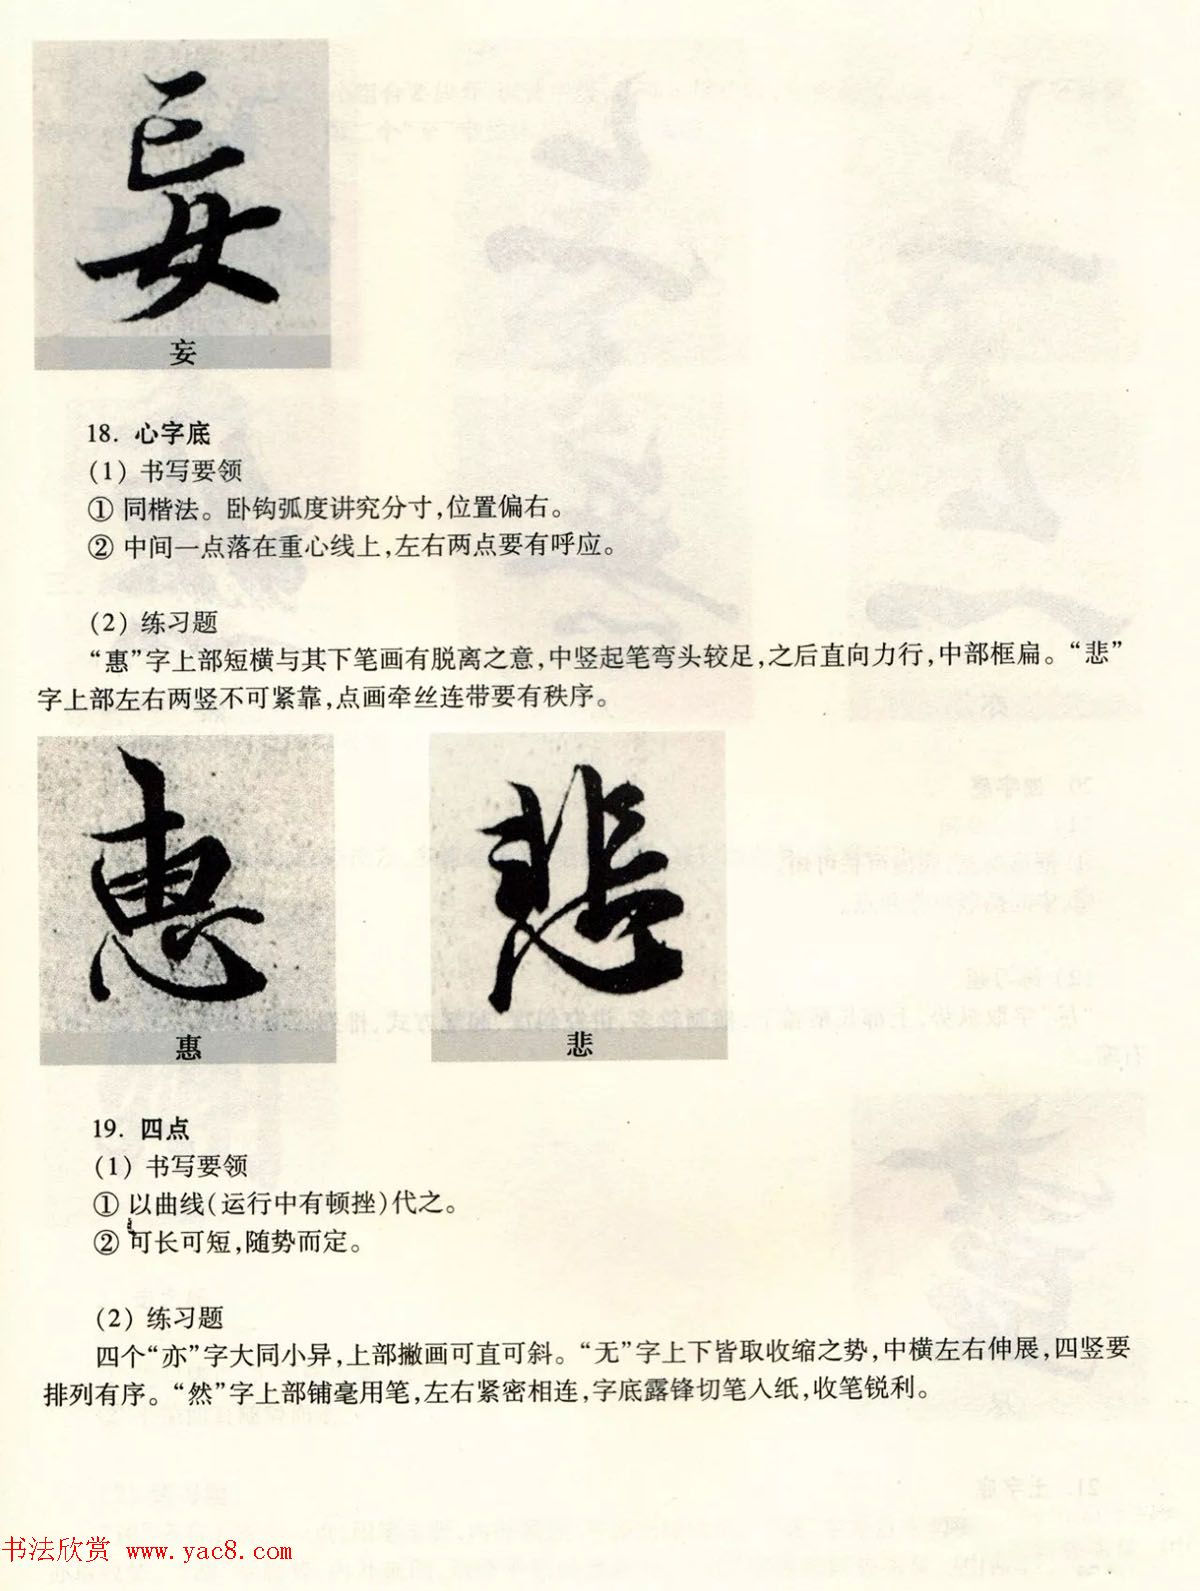 妄
妄
18. 心字底
(1) 书写要领
① 同楷法。卧钩弧度讲究分寸,位置偏右。
② 中间一点落在重心线上,左右两点要有呼应。
(2) 练习题
“惠”字上部短横与其下笔画有脱离之意,中竖起笔弯头较足,之后直向力行,中部框扁。“悲”
字上部左右两竖不可紧靠,点画牵丝连带要有秩序。
惠 悲
惠 悲
19. 四点
(1) 书写要领
① 以曲线(运行中有顿挫)代之。
② 可长可短,随势而定。
(2) 练习题
四个“亦”字大同小异,上部撇画可直可斜。“无”字上下皆取收缩之势,中横左右伸展,四竖要
排列有序。“然”字上部铺毫用笔,左右紧密相连,字底露锋切笔入纸,收笔锐利。
书法欣赏 www.yac8.com